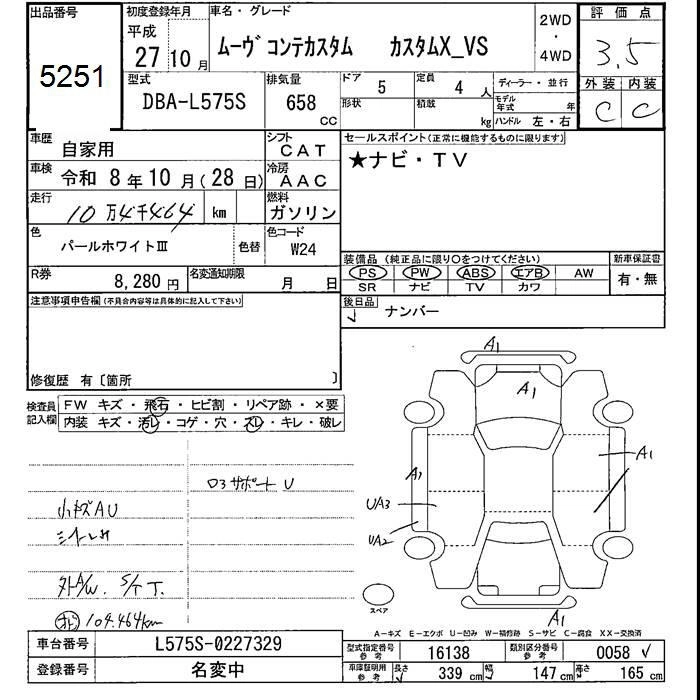 出品番号
5251
初度登録年月
平成
27 10 月
車名・グレード
ムーヴ コンテカスタム カスタムX_VS
2WD
・
4WD
評価点
3.5
外装 内装
C C
型式
DBA-L575S
排気量
658
cc
ドア
5
定員
4 人
形状
積載
kg
ディーラー・並行
モデル年式 年
ハンドル 左・右
車歴
自家用
シフト
CAT
車検
令和 8 年 10 月 ( 28 日)
冷房
AAC
走行
10 万4千464 km
燃料
ガソリン
色
パールホワイトⅢ
色替
色コード
W24
R券
8,280 円
名変通知期限
月 日
セールスポイント(正常に機能するものに限ります)
★ナビ・TV
装備品 (純正品に限り○をつけてください)
PS PW ABS エアB AW
SR ナビ TV カワ
新車保証書
有・無
後日品
✓ ナンバー
注意事項申告欄(不具合内容等は具体的に記入して下さい)
修復歴 有〔箇所 〕
検査員記入欄
FW キズ・飛石・ヒビ割・リペア跡・×要
内装 キズ・汚レ・コゲ・穴・スレ・キレ・破レ
ロネサポート U
小キズAU
外A/W. S/T T.
104.464km
A1
A1
A1
A1
UA3
UA2
A1
スペア
A-キズ E-エクボ U-凹み W-補修跡 S-サビ C-腐食 XX-交換済
車台番号
L575S-0227329
登録番号
名変中
型式指定番号 参考
16138
類別区分番号 参考
0058 ✓
車庫証明用 参考
長さ 339 cm
幅 147 cm
高さ 165 cm